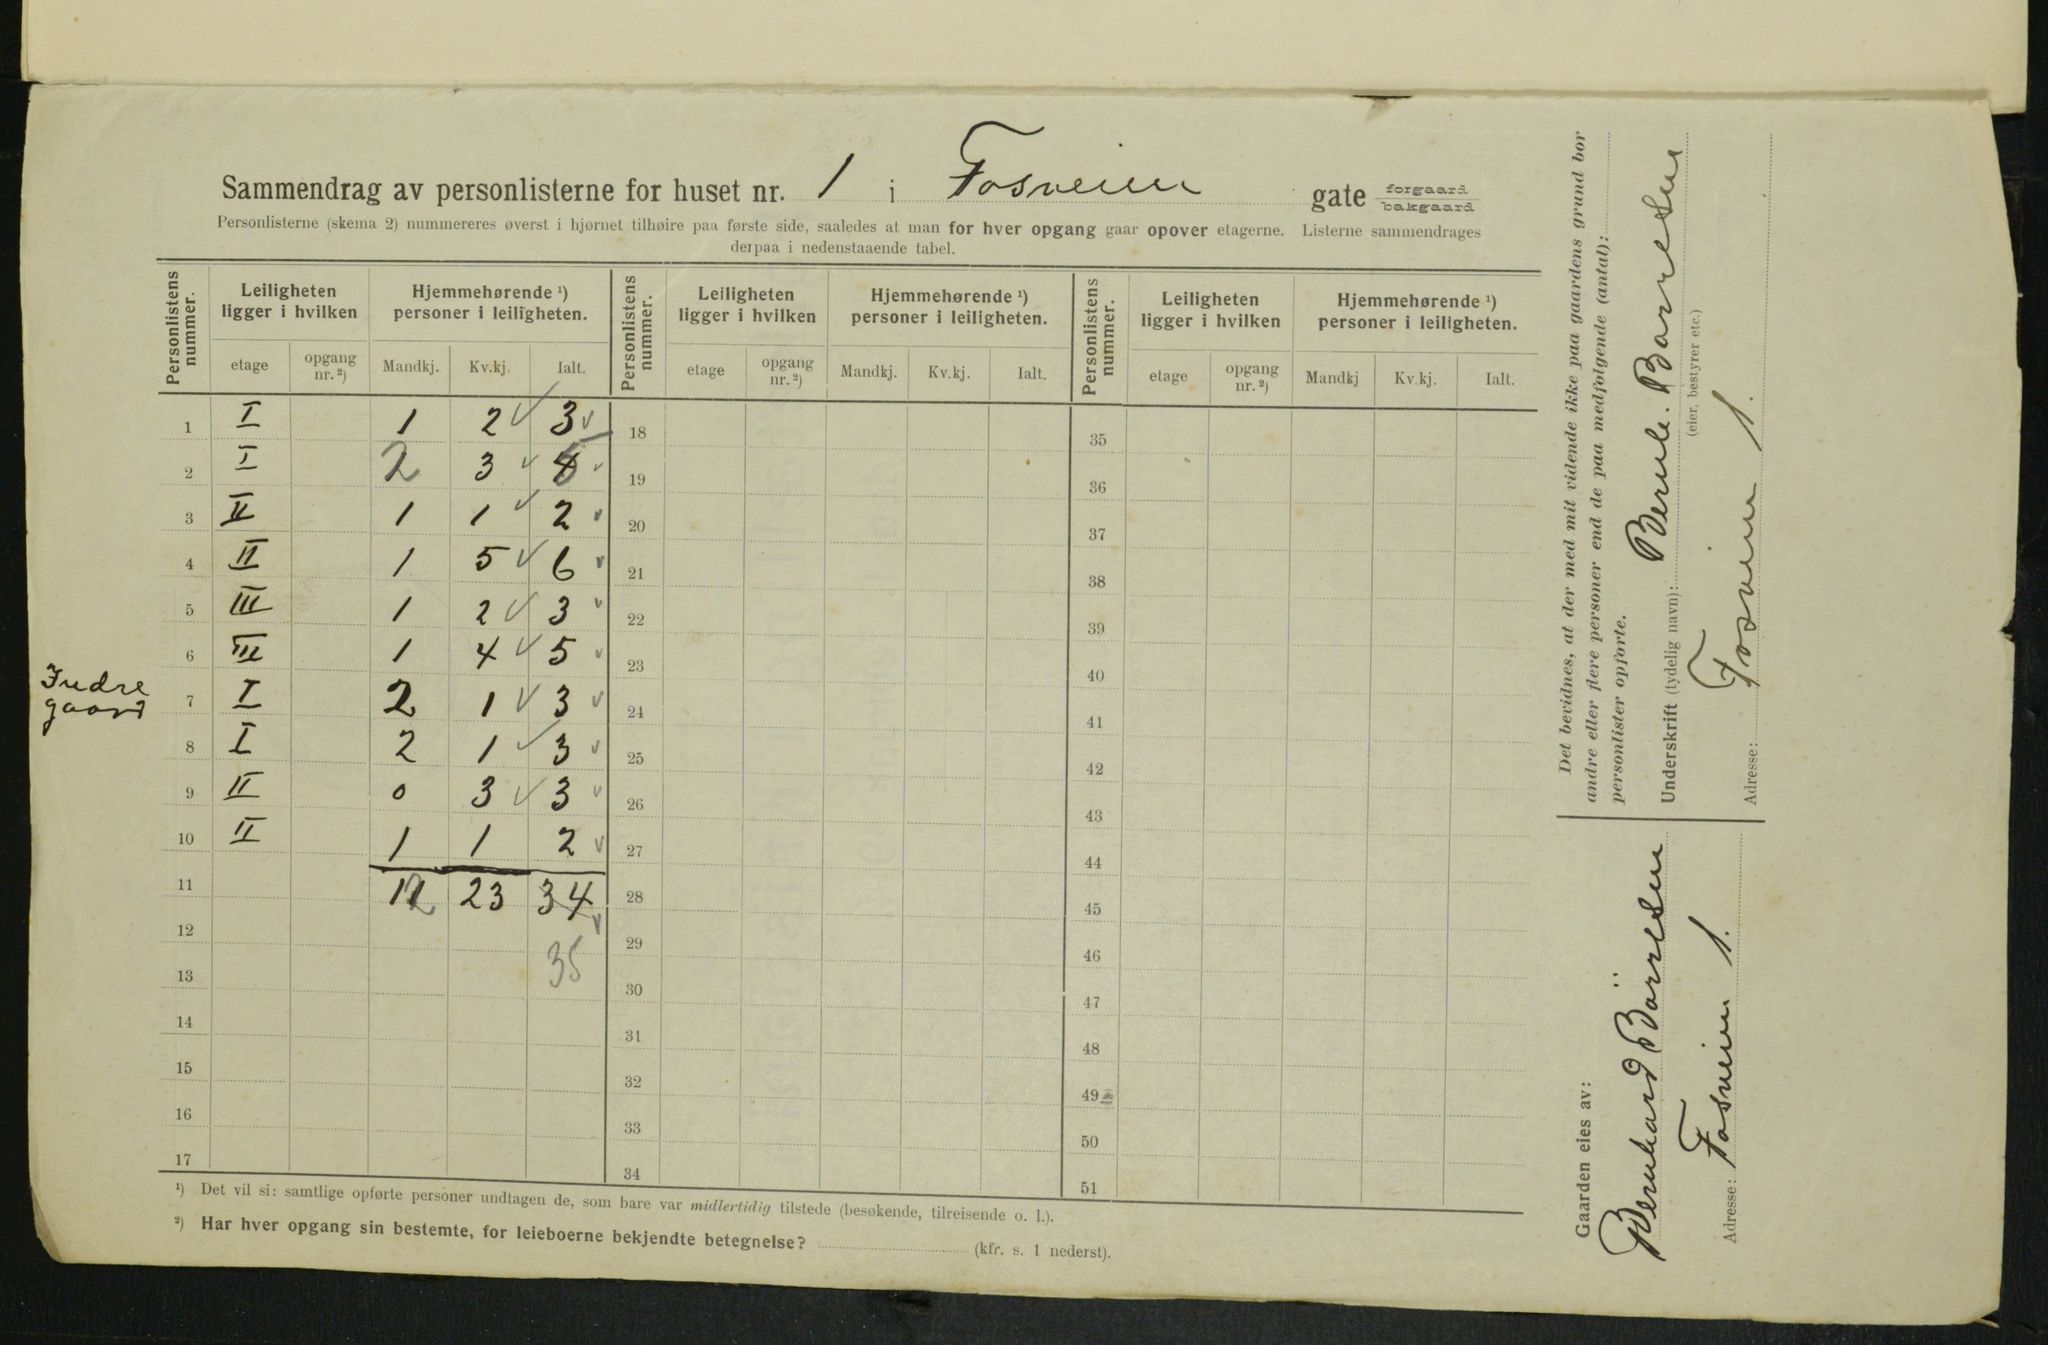 Sammendrag av personlisterne for huset nr. 1 i Fosveien gate forgaard bakgaard
Personlisterne (skema 2) nummereres øverst i hjørnet tilhøire paa første side, saaledes at man for hver opgang gaar opover etagerne. Listerne sammendrages
derpaa i nedenstaaende tabel.
Personlistens nummer. Leiligheten ligger i hvilken Hjemmehørende ¹) personer i leiligheten. Personlistens nummer. Leiligheten ligger i hvilken Hjemmehørende ¹) personer i leiligheten. Personlistens nummer. Leiligheten ligger i hvilken Hjemmehørende ¹) personer i leiligheten.
etage opgang nr. ²) Mandkj. Kv.kj. Ialt. etage opgang nr. ²) Mandkj. Kv.kj. Ialt. etage opgang nr. ²) Mandkj Kv.kj. Ialt.
1 I 1 2 3 18 35
2 I 2 3 5 19 36
3 II 1 1 2 20 37
4 II 1 5 6 21 38
5 III 1 2 3 22 39
6 III 1 4 5 23 40
Indre
gaard
7 I 2 1 3 24 41
8 I 2 1 3 25 42
9 II 0 3 3 26 43
10 II 1 1 2 27 44
11 12 23 34 28 45
12 29 46
13 35 30 47
14 31 48
15 32 49
16 33 50
17 34 51
¹) Det vil si: samtlige opførte personer undtagen de, som bare var midlertidig tilstede (besøkende, tilreisende o. l.).
²) Har hver opgang sin bestemte, for leieboerne bekjendte betegnelse? (kfr. s. 1 nederst).
Det bevidnes, at der med mit vidende ikke paa gaardens grund bor
andre eller flere personer end de paa medfølgende (antal):
personlister opførte.
Underskrift (tydelig navn): Bernh. Børresen
(eier, bestyrer etc.)
Fosveien 1.
Adresse:
Gaarden eies av:
Bernhard Börresen
Adresse: Fosveien 1.